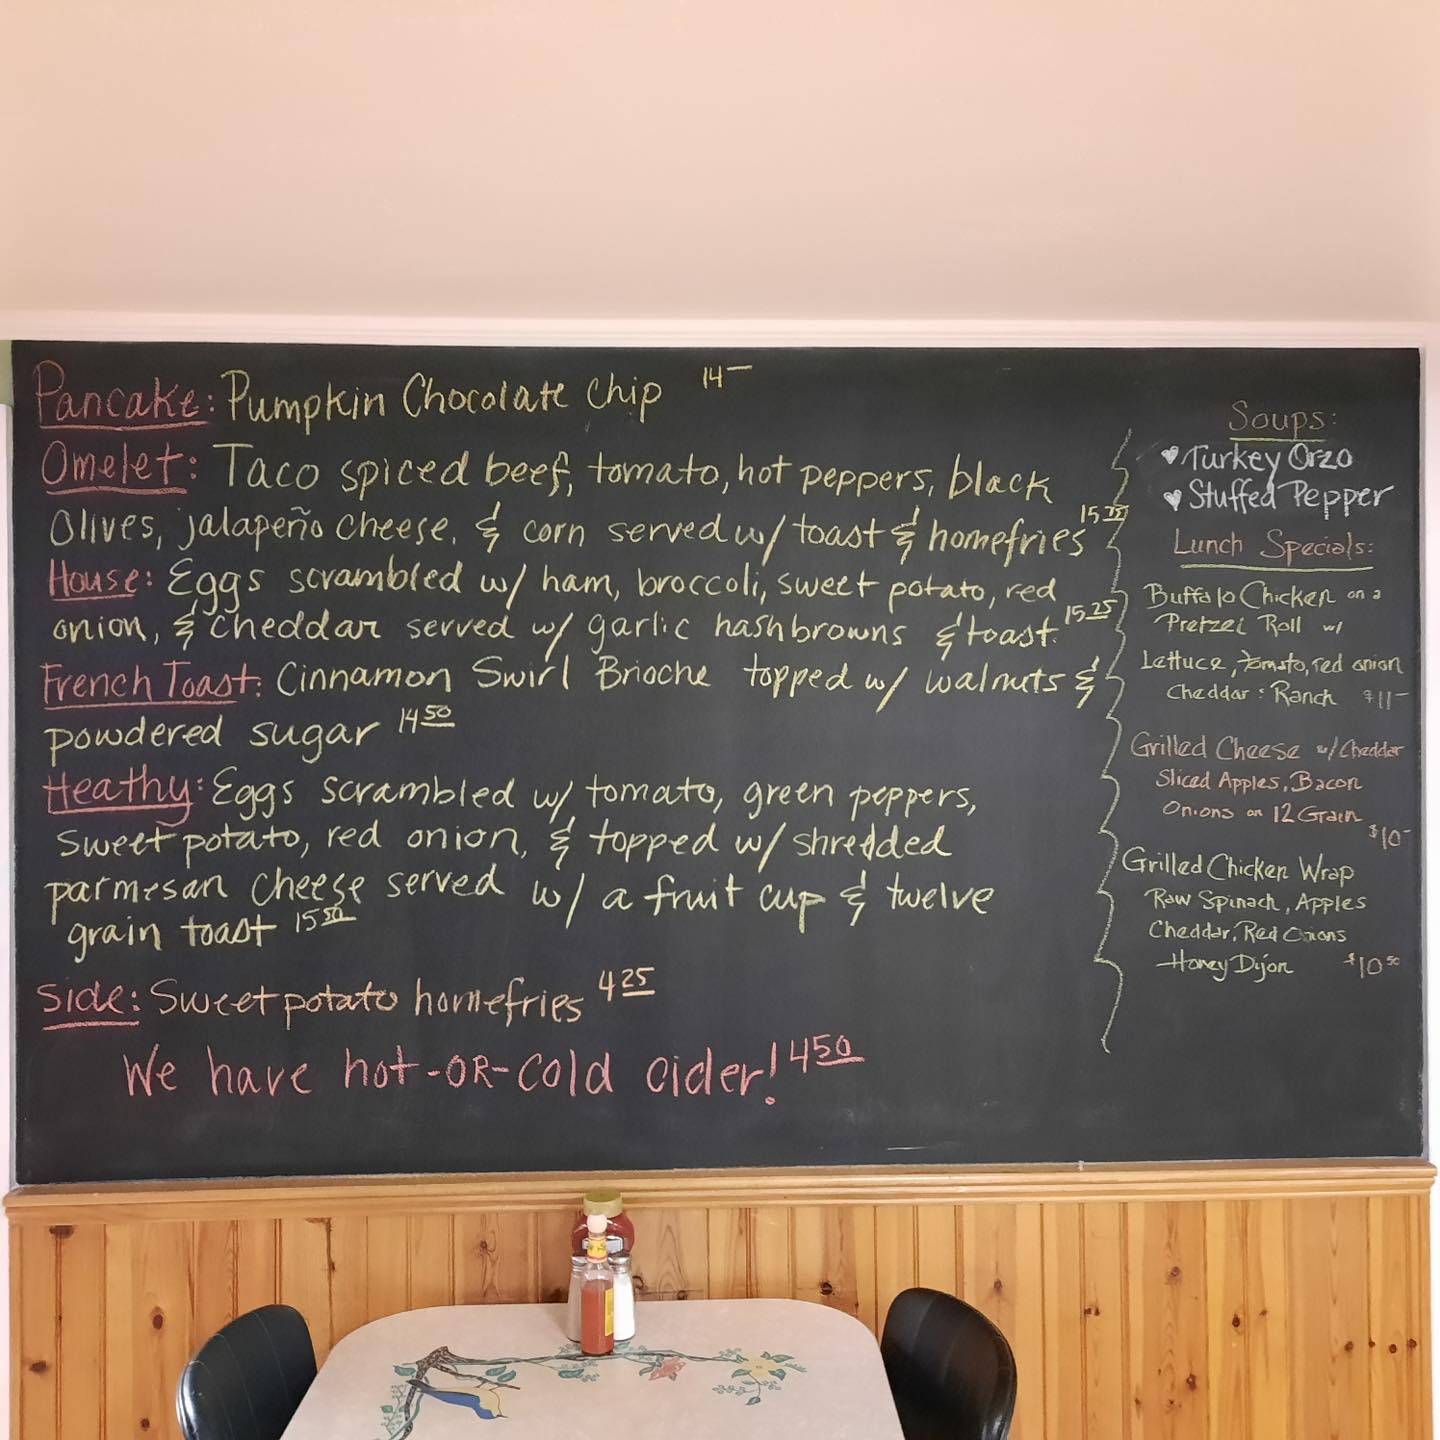 Pancake: Pumpkin Chocolate Chip 14-
Omelet: Taco spiced beef, tomato, hot peppers, black
Olives, jalapeño cheese, & corn served w/ toast & homefries 15.25
House: Eggs scrambled w/ ham, broccoli, sweet potato, red
onion, & cheddar served w/ garlic hashbrowns & toast. 15.25
French Toast: Cinnamon Swirl Brioche topped w/ walnuts &
powdered sugar 14 50
Heathy: Eggs scrambled w/ tomato, green peppers,
sweet potato, red onion, & topped w/ shredded
parmesan cheese served w/ a fruit cup & twelve
grain toast 15 50
Side: Sweet potato homefries 4 25
We have hot-OR-cold cider! 4 50
Soups:
♥ Turkey Orzo
♥ Stuffed Pepper
Lunch Specials:
Buffalo Chicken on a
Pretzel Roll w/
Lettuce, tomato, red onion
Cheddar : Ranch $11-
Grilled Cheese w/ Cheddar
Sliced Apples, Bacon
Onions on 12 Grain
$10-
Grilled Chicken Wrap
Raw Spinach, Apples
Cheddar, Red Onions
Honey Dijon $10 50